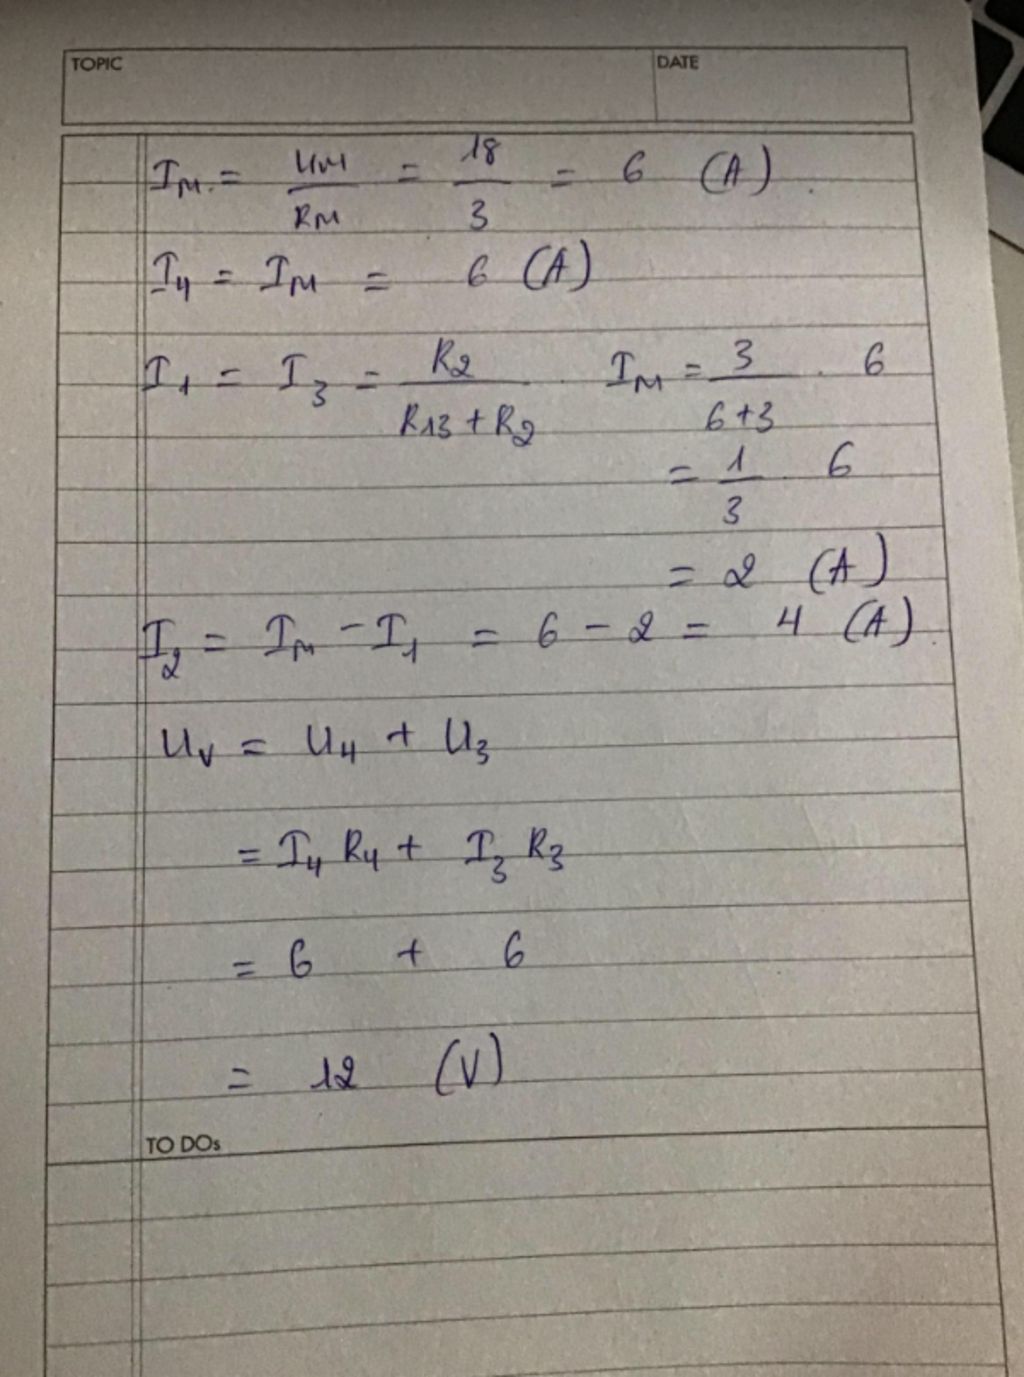 TOPIC DATE
I_M = U_M / R_M = 18 / 3 = 6 (A)
I_4 = I_M = 6 (A)
I_1 = I_3 = R_2 / (R_13 + R_2) . I_M = 3 / (6+3) . 6
= 1 / 3 . 6
= 2 (A)
I_2 = I_M - I_1 = 6 - 2 = 4 (A)
U_V = U_4 + U_3
= I_4 R_4 + I_3 R_3
= 6 + 6
= 12 (V)
TO DOs